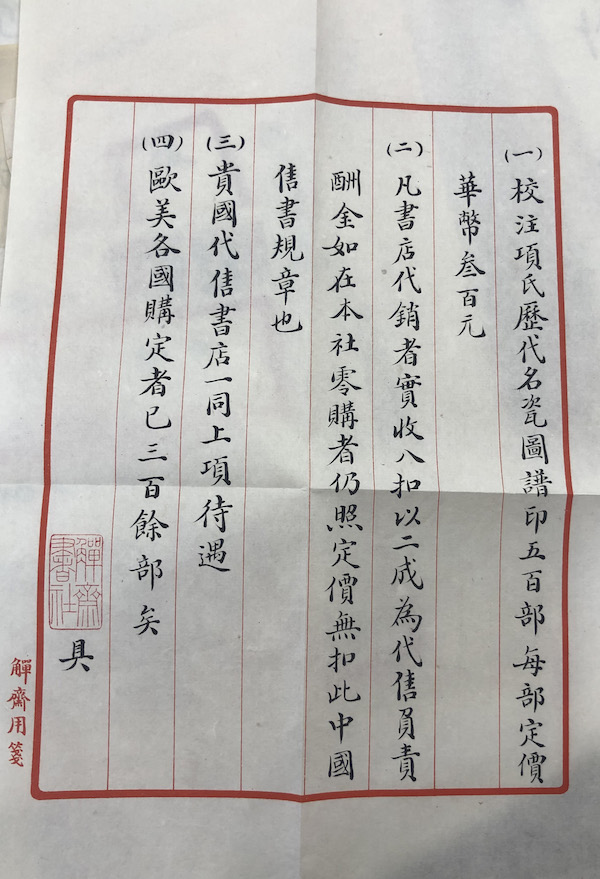 (一)校注項氏歷代名瓷圖譜印五百部每部定價
華幣叁百元
(二)凡書店代銷者實收八扣以二成為代售負責
酬金如在本社零購者仍照定價無扣此中國
售書規章也
(三)貴國代售書店一同上項待遇
(四)歐美各國購定者已三百餘部矣
觶齋書社
具
觶齋用箋